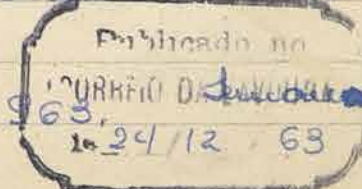 Publicado no
CORREIO DA
963,
24/12 63